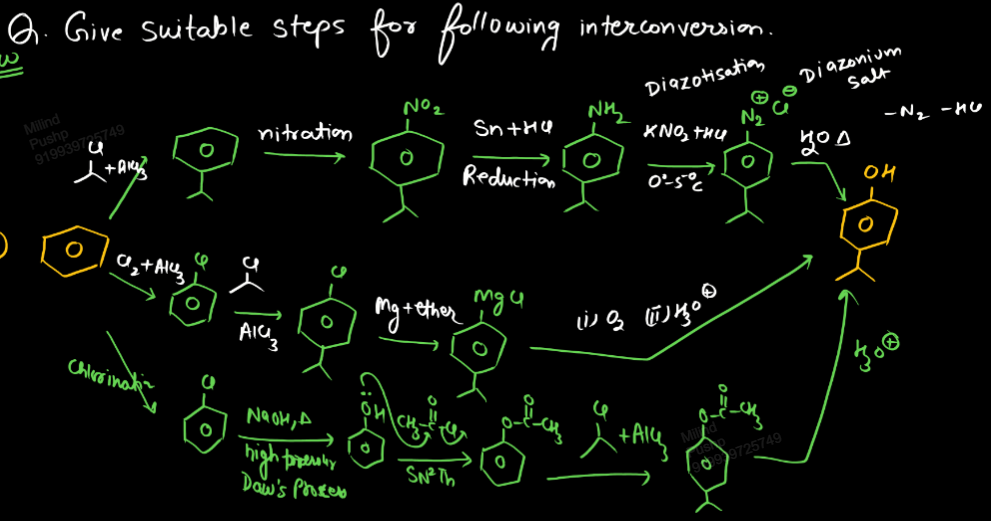 Q. Give suitable steps for following interconversion.
Milind
Pushp
919939725749
Cl
+AlCl3
nitration
NO2
Sn+HCl
Reduction
NH2
Diazotisation
KNO2+HCl
0°-5°C
N2⊕ Cl⊖
Diazonium
salt
H2O Δ
-N2 -HCl
OH
Cl2+AlCl3
Cl
Cl
AlCl3
Cl
Mg+ether
MgCl
(i) O2 (ii) H3O⊕
H3O⊕
Cl
NaOH, Δ
high pressure
Dow's Process
:OH
CH3-C-Cl
O
SN2Th
O-C-CH3
O
Cl
+AlCl3
O-C-CH3
O
Milind
Pushp
919939725749